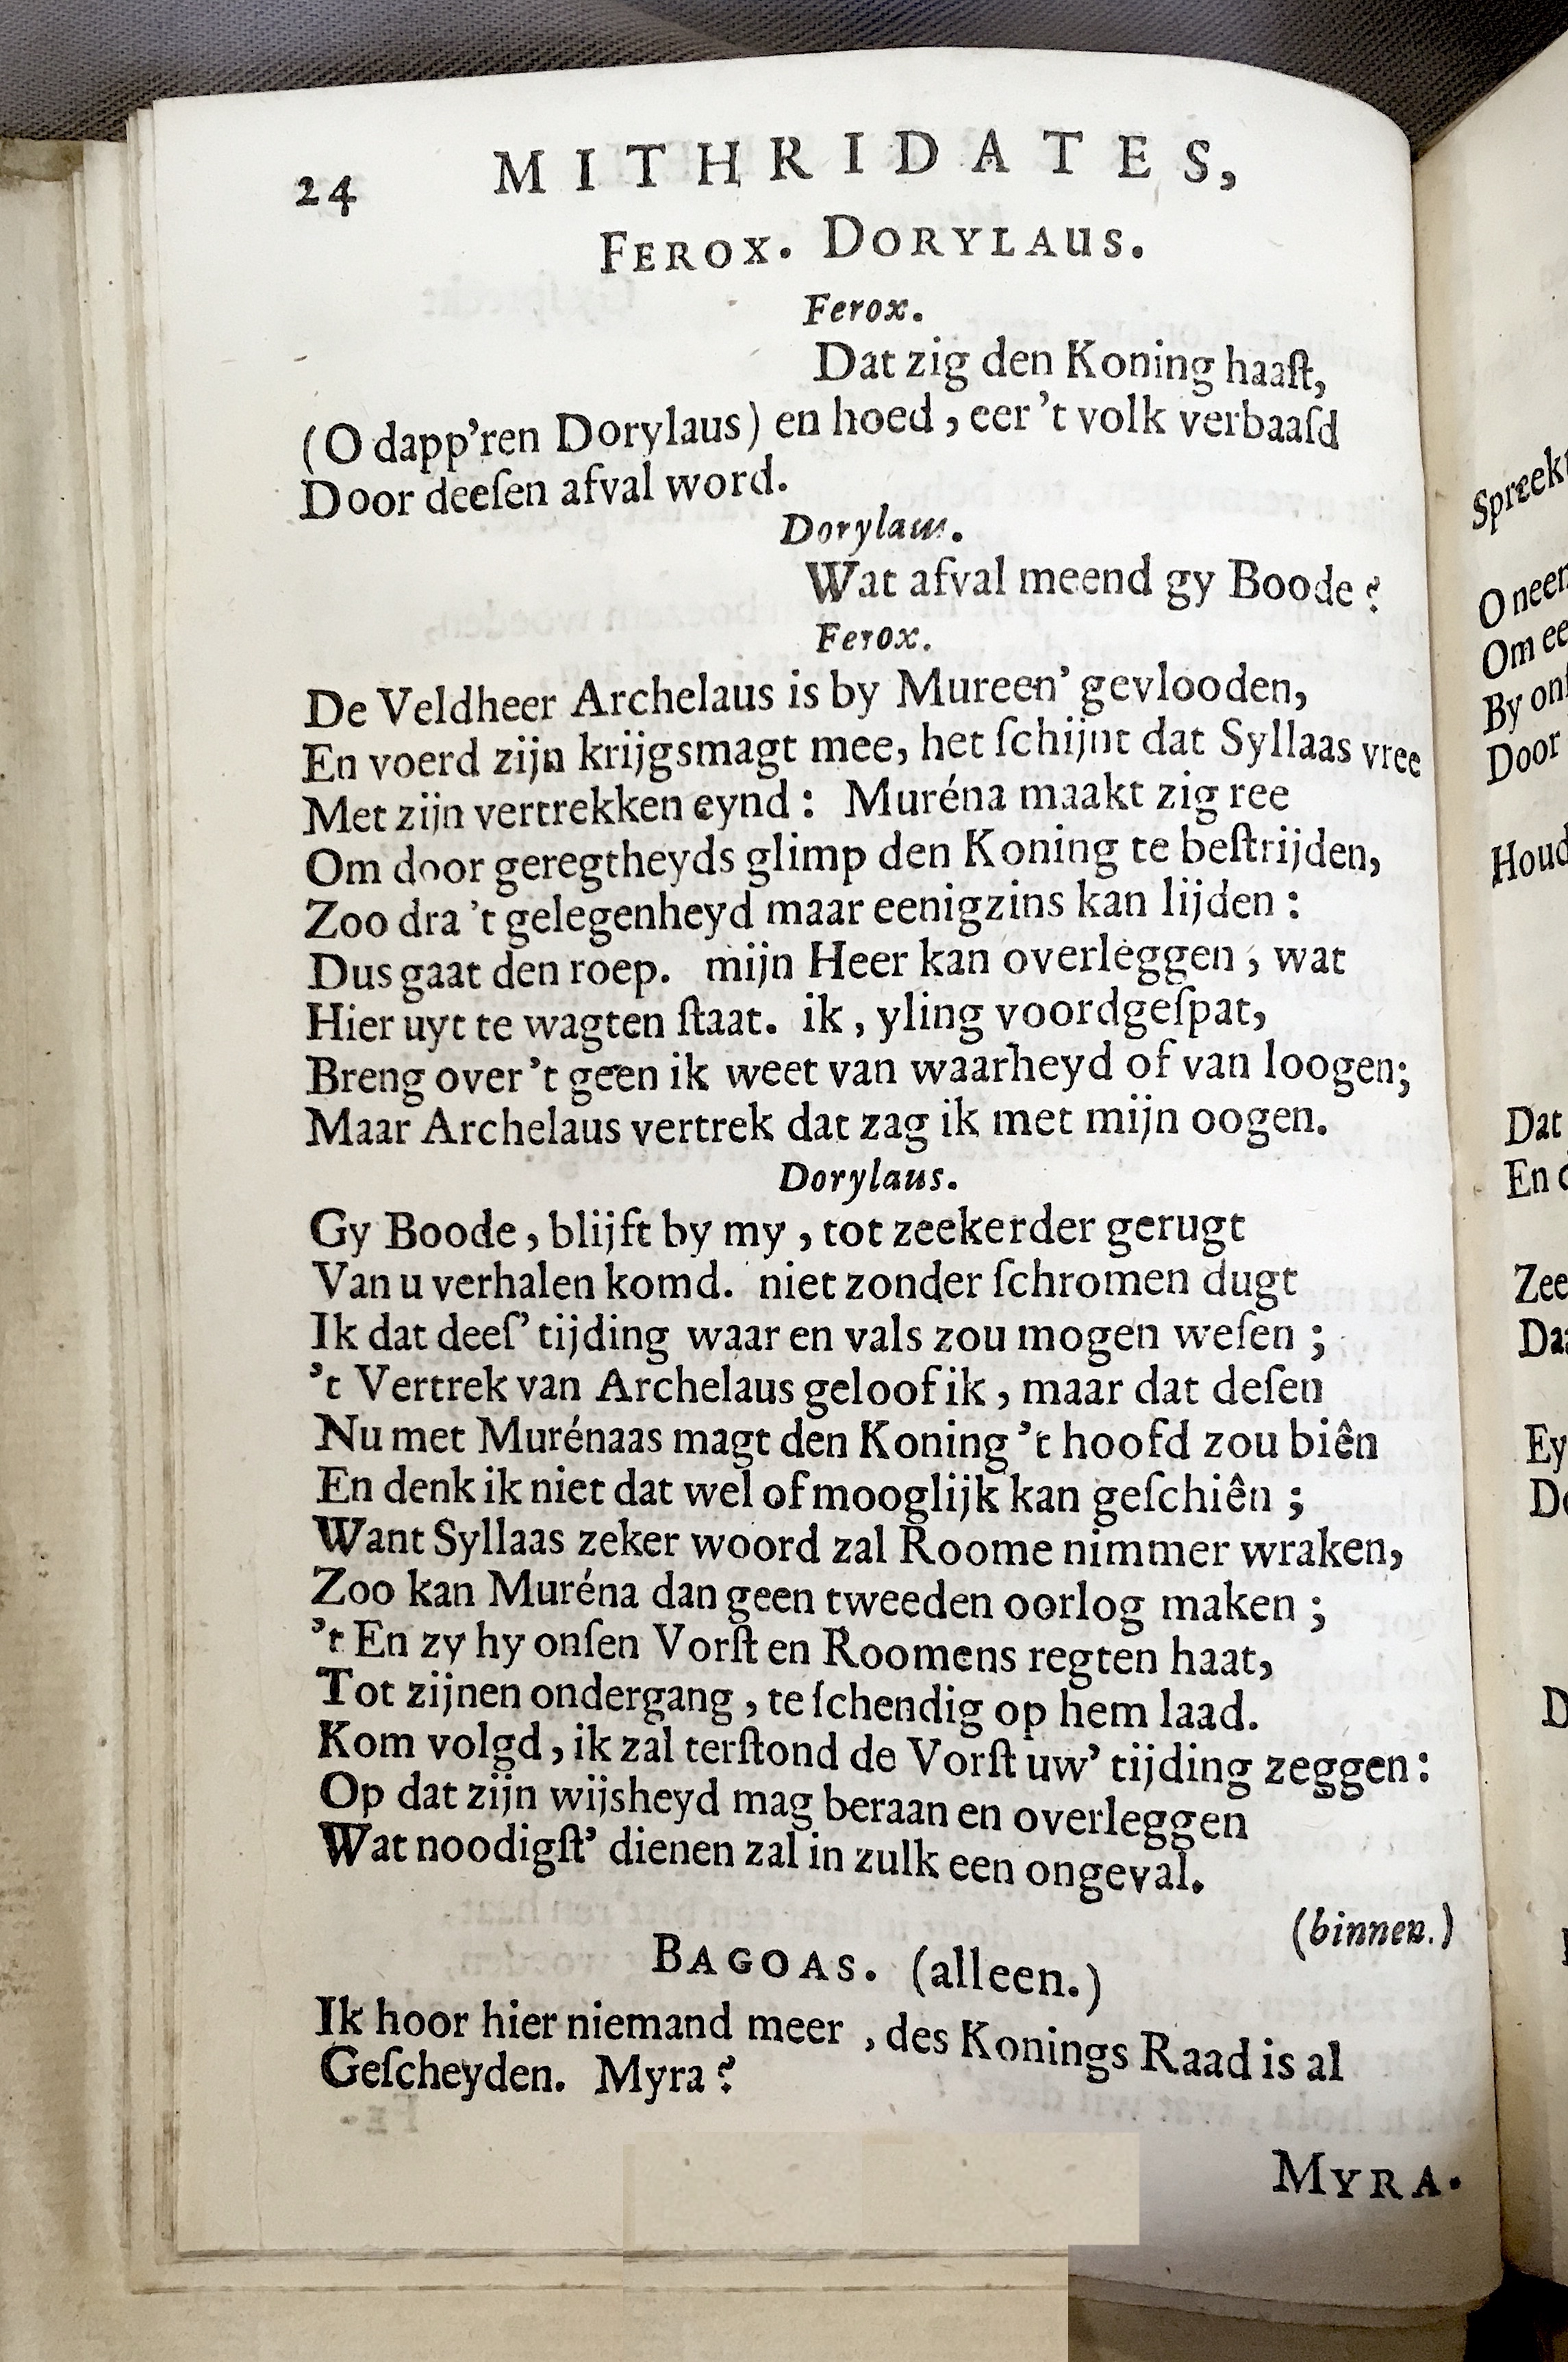 24 MITHRIDATES,
FEROX. DORYLAUS.
Ferox.
Dat zig den Koning haaſt,
(O dapp'ren Dorylaus) en hoed, eer 't volk verbaaſd
Door deeſen afval word.
Dorylaus.
Wat afval meend gy Boode?
Ferox.
De Veldheer Archelaus is by Mureen' gevlooden,
En voerd zijn krijgsmagt mee, het ſchijnt dat Syllaas vree
Met zijn vertrekken eynd: Muréna maakt zig ree
Om door geregtheyds glimp den Koning te beſtrijden,
Zoo dra 't gelegenheyd maar eenigzins kan lijden:
Dus gaat den roep. mijn Heer kan overleggen, wat
Hier uyt te wagten ſtaat. ik, yling voordgeſpat,
Breng over 't geen ik weet van waarheyd of van loogen;
Maar Archelaus vertrek dat zag ik met mijn oogen.
Dorylaus.
Gy Boode, blijft by my, tot zeekerder gerugt
Van u verhalen komd. niet zonder ſchromen dugt
Ik dat deeſ' tijding waar en vals zou mogen weſen;
't Vertrek van Archelaus geloof ik, maar dat deſen
Nu met Murénaas magt den Koning 't hoofd zou biên
En denk ik niet dat wel of mooglijk kan geſchiên;
Want Syllaas zeker woord zal Roome nimmer wraken,
Zoo kan Muréna dan geen tweeden oorlog maken;
't En zy hy onſen Vorſt en Roomens regten haat,
Tot zijnen ondergang, te ſchendig op hem laad.
Kom volgd, ik zal terſtond de Vorſt uw' tijding zeggen:
Op dat zijn wijsheyd mag beraan en overleggen
Wat noodigſt' dienen zal in zulk een ongeval.
(binnen.)
BAGOAS. (alleen.)
Ik hoor hier niemand meer, des Konings Raad is al
Geſcheyden. Myra?
MYRA.
O neen
Om ee
Door
Houd
Dat
Zee
Ey